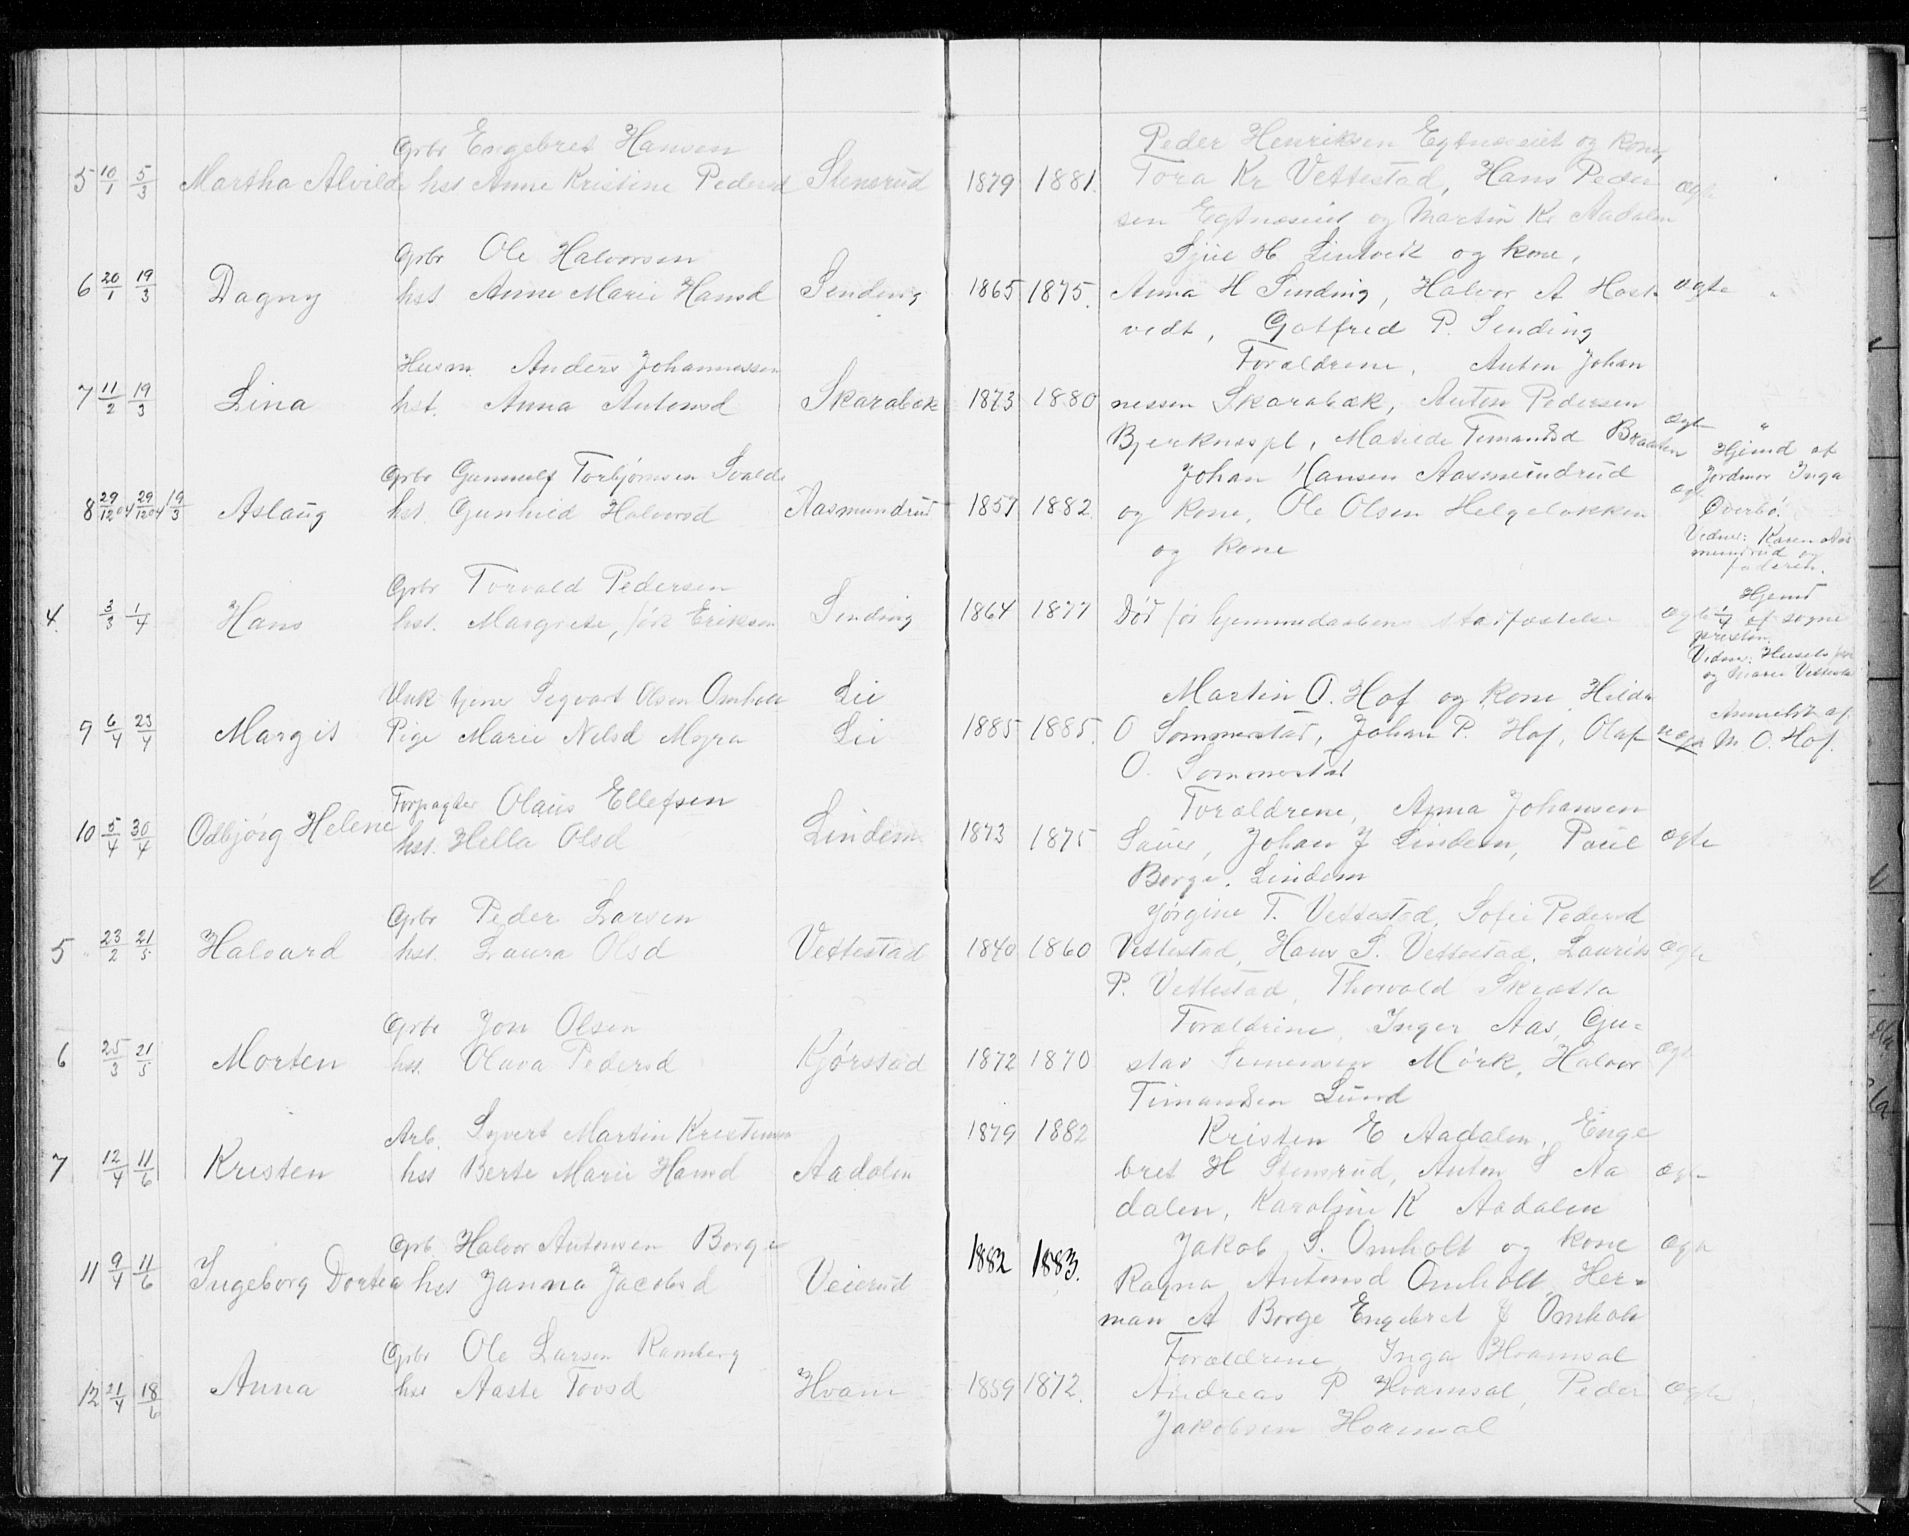 Gbr Engebret Hansen Peder Henriksen og kone
5 10/1 5/3 Martha Alvilde hst Anne Kristine Pedersd Stensrud 1879 1881. Tora Kr Vettestad, Hans Peder ægte
sen og Martin Kr Aadalen
Gbr Ole Halvorsen H og kone,
6 20/1 19/3 Dagny hst Anne Marie Hansd Sending 1865 1875. Anna H Sending, Halvor A Host ægte "
vedt, Gotfred P. Sending
Husm. Anders Johannessen Forældrene, Anton Johan
7 11/2 19/3 Lina hst. Anna Antonsd Skarabæk 1873 1880 nessen Skarabæk, Anton Pedersen
Bjerknespl, Matilde Timansd Braaten ægte "
Gbr Gunnulf Torbjørnsen Johan Hansen Aasmundrud Hjemd af Jordmor Inga
8 29/12 04 29/12 04 19/3 Aslaug hst. Gunhild Halvorsd Aasmundrud 1857 1882 og kone, Ole Olsen Helgeløkken ægte Øverbø.
og kone Vidner: Karen Aas
mundrud og
faderen.
Gbr Torvald Pedersen Hjemd
4. 3/3 1/4 Hans hst. Margrete, før Eriksen Sending 1864 1877 Død før hjemmedaabens stadfæstelse ægte 1/4 af sogne
presten
Vidner:
og Maren Vettestad
Unk tjener Segvart Olsen Omholt Lii Martin O. Hof og kone, Hilda
9 6/4 23/4 Margit Pige Marie Nilsd Myra Lii 1885 1885. O Sommerstad, Johan P. Hof, Olaf uægte Anmeldt af M O. Hof.
O. Sommerstad
Forpagter Olaus Ellefsen Forældrene, Anna Johansen
10 5/4 30/4 Odbjørg Helene hst. Hella Olsd Lindem 1873 1875 Sauer, Johan J Lindem, Paul ægte
Borge, Lindem
Gbr Peder Larsen Jørgine T. Vettestad, Sofie Pedersd
5 23/2 21/5 Halvard hst. Laura Olsd Vettestad 1840 1860 Vettestad, Hans S. Vettestad, Laurits ægte
P. Vettestad, Thorvald
Gbr Jon Olsen Forældrene, Inger Aas, Gu-
6 25/3 21/5 Morten hst. Olava Pedersd Kjørstad 1872 1870 stav Simensen Mørk, Halvor ægte
Timansen Lund
Arb. Syvert Martin Kristensen 1879 1882 Kristen E Aadalen, Enge
7 12/4 11/6 Kristen hst Berte Marie Hansd Aadalen bret H Stensrud, Anton S Aa ægte
dalen, Karoline K Aadalen
Gbr. Halvor Antonsen Borge 1882 1883. Jakob S. Omholt og kone ægte
11 9/4 11/6 Ingeborg Dortea hst Janna Jacobsd Veierud Ragna Antonsd Omholt, Her-
man A Borge Engebret J Omholt
Gbr Ole Larsen Ramberg Forældrene, Inga Hvamsal
12 21/4 18/6 Anna hst Aaste Tovsd Hvam 1859 1872. Andreas P Hvamsal, Peder ægte
Jakobsen Hvamsal